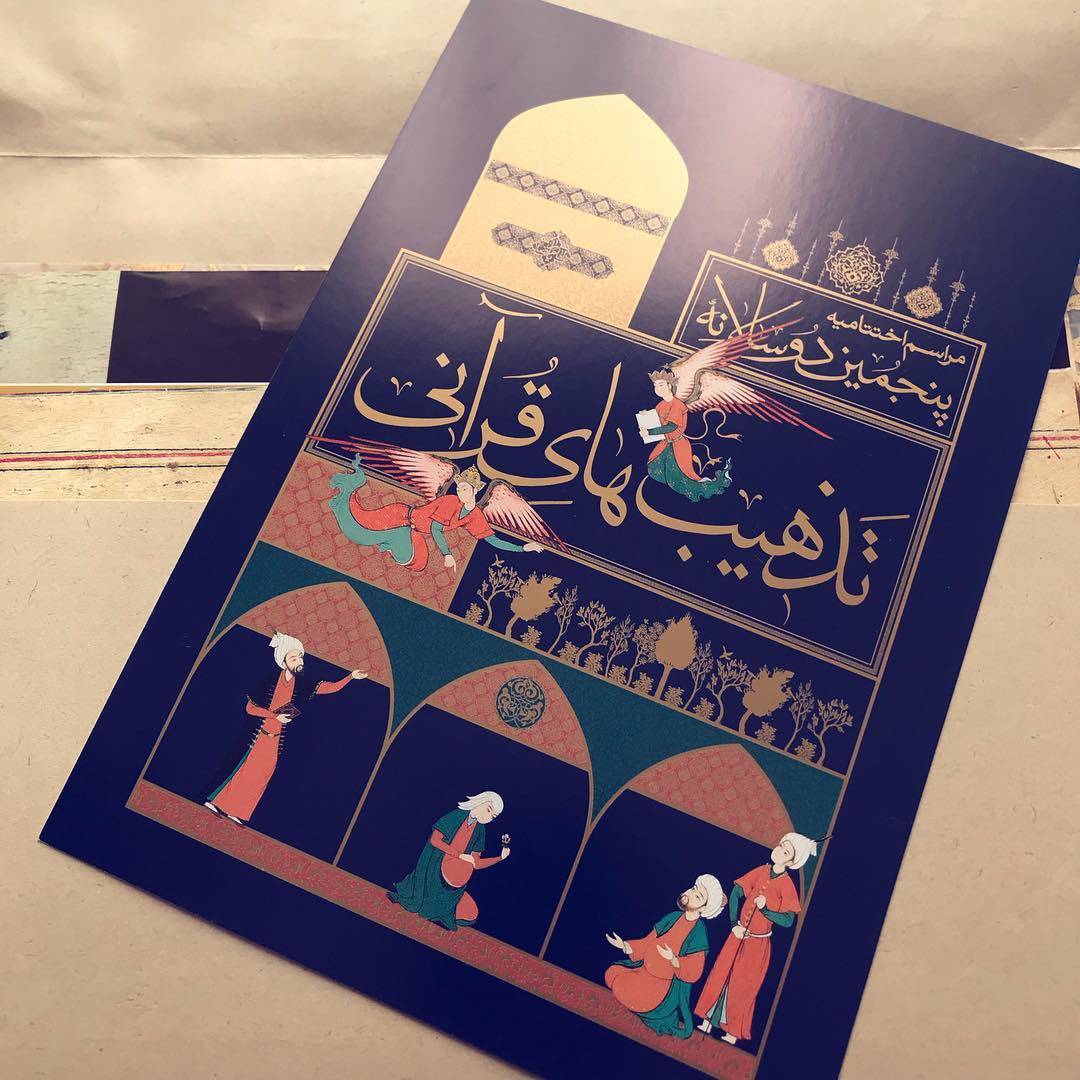 مراسم اختتامیه
پنجمین دوسالانهٔ
تذهیب‌های قرآنی